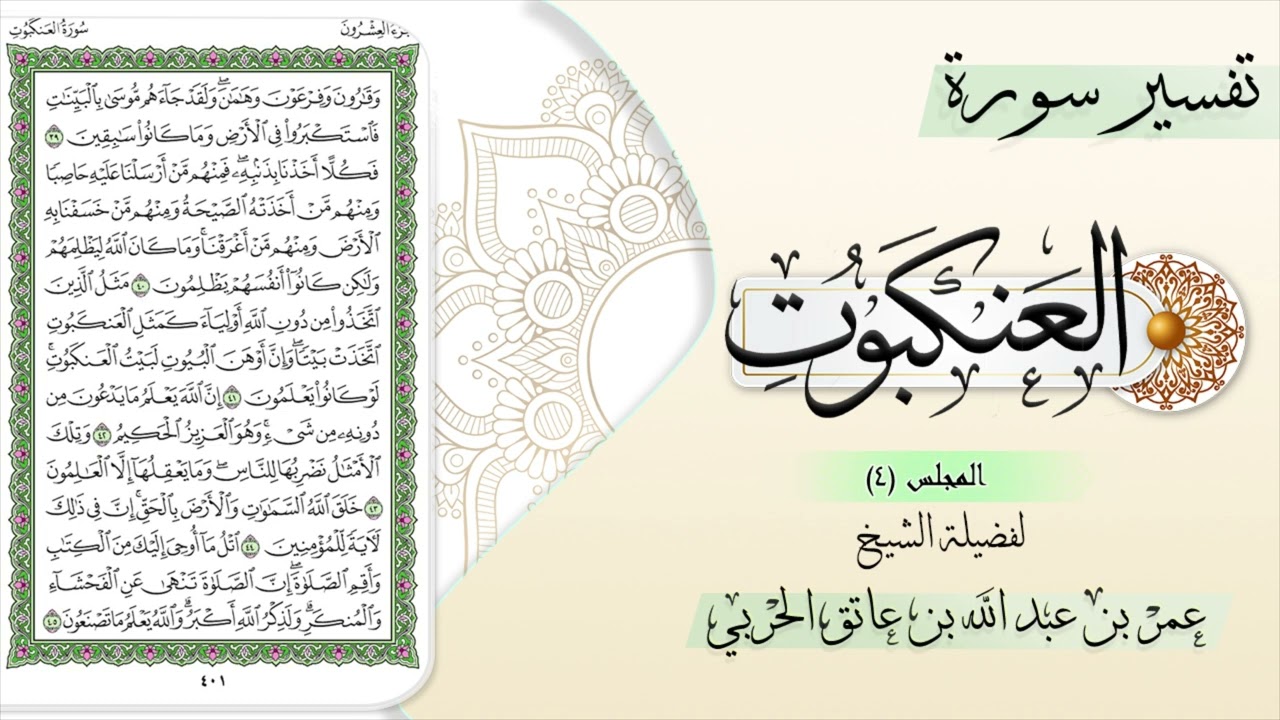 تفسير سورة
العَنكَبُوتِ
المجلس (٤)
لفضيلة الشيخ
عمر بن عبد الله بن عاتق الحربي
سُورَةُ العَنكَبُوتِ
الجزءُ العِشْرُونَ
وَقَٰرُونَ وَفِرْعَوْنَ وَهَٰمَٰنَۖ وَلَقَدْ جَآءَهُم مُّوسَىٰ بِٱلْبَيِّنَٰتِ
فَٱسْتَكْبَرُوا۟ فِى ٱلْأَرْضِ وَمَا كَانُوا۟ سَٰبِقِينَ ٣٩
فَكُلًّا أَخَذْنَا بِذَنۢبِهِۦۖ فَمِنْهُم مَّنْ أَرْسَلْنَا عَلَيْهِ حَاصِبًا
وَمِنْهُم مَّنْ أَخَذَتْهُ ٱلصَّيْحَةُ وَمِنْهُم مَّنْ خَسَفْنَا بِهِ
ٱلْأَرْضَ وَمِنْهُم مَّنْ أَغْرَقْنَاۚ وَمَا كَانَ ٱللَّهُ لِيَظْلِمَهُمْ
وَلَٰكِن كَانُوٓا۟ أَنفُسَهُمْ يَظْلِمُونَ ٤٠ مَثَلُ ٱلَّذِينَ
ٱتَّخَذُوا۟ مِن دُونِ ٱللَّهِ أَوْلِيَآءَ كَمَثَلِ ٱلْعَنكَبُوتِ
ٱتَّخَذَتْ بَيْتًاۖ وَإِنَّ أَوْهَنَ ٱلْبُيُوتِ لَبَيْتُ ٱلْعَنكَبُوتِۚ
لَوْ كَانُوا۟ يَعْلَمُونَ ٤١ إِنَّ ٱللَّهَ يَعْلَمُ مَا يَدْعُونَ مِن
دُونِهِۦ مِن شَىْءٍۚ وَهُوَ ٱلْعَزِيزُ ٱلْحَكِيمُ ٤٢ وَتِلْكَ
ٱلْأَمْثَٰلُ نَضْرِبُهَا لِلنَّاسِۖ وَمَا يَعْقِلُهَآ إِلَّا ٱلْعَٰلِمُونَ
٤٣ خَلَقَ ٱللَّهُ ٱلسَّمَٰوَٰتِ وَٱلْأَرْضَ بِٱلْحَقِّۚ إِنَّ فِى ذَٰلِكَ
لَءَايَةً لِّلْمُؤْمِنِينَ ٤٤ ٱتْلُ مَآ أُوحِىَ إِلَيْكَ مِنَ ٱلْكِتَٰبِ
وَأَقِمِ ٱلصَّلَوٰةَۖ إِنَّ ٱلصَّلَوٰةَ تَنْهَىٰ عَنِ ٱلْفَحْشَآءِ
وَٱلْمُنكَرِۗ وَلَذِكْرُ ٱللَّهِ أَكْبَرُۗ وَٱللَّهُ يَعْلَمُ مَا تَصْنَعُونَ ٤٥
٤٠١